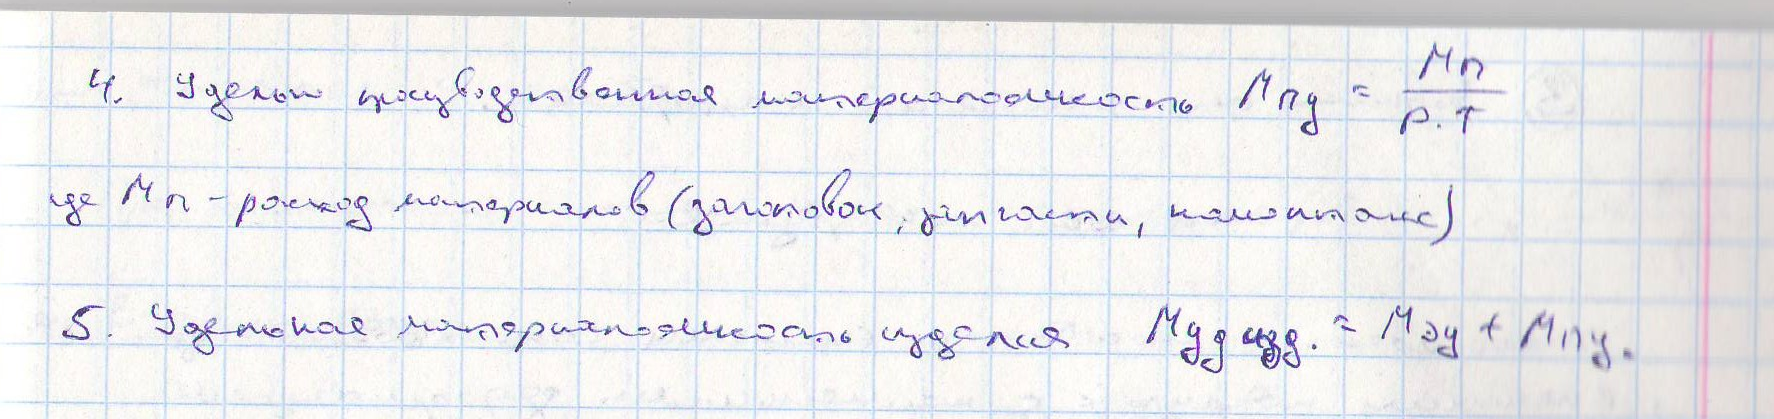 4. Удельн производственная материалоемкость Мпу = Мп / Р.Т
где Мп - расход материалов (заготовок, запчасти, комплект)
5. Удельная материалоемкость изделия Муд изд. = Мэу + Мпу.